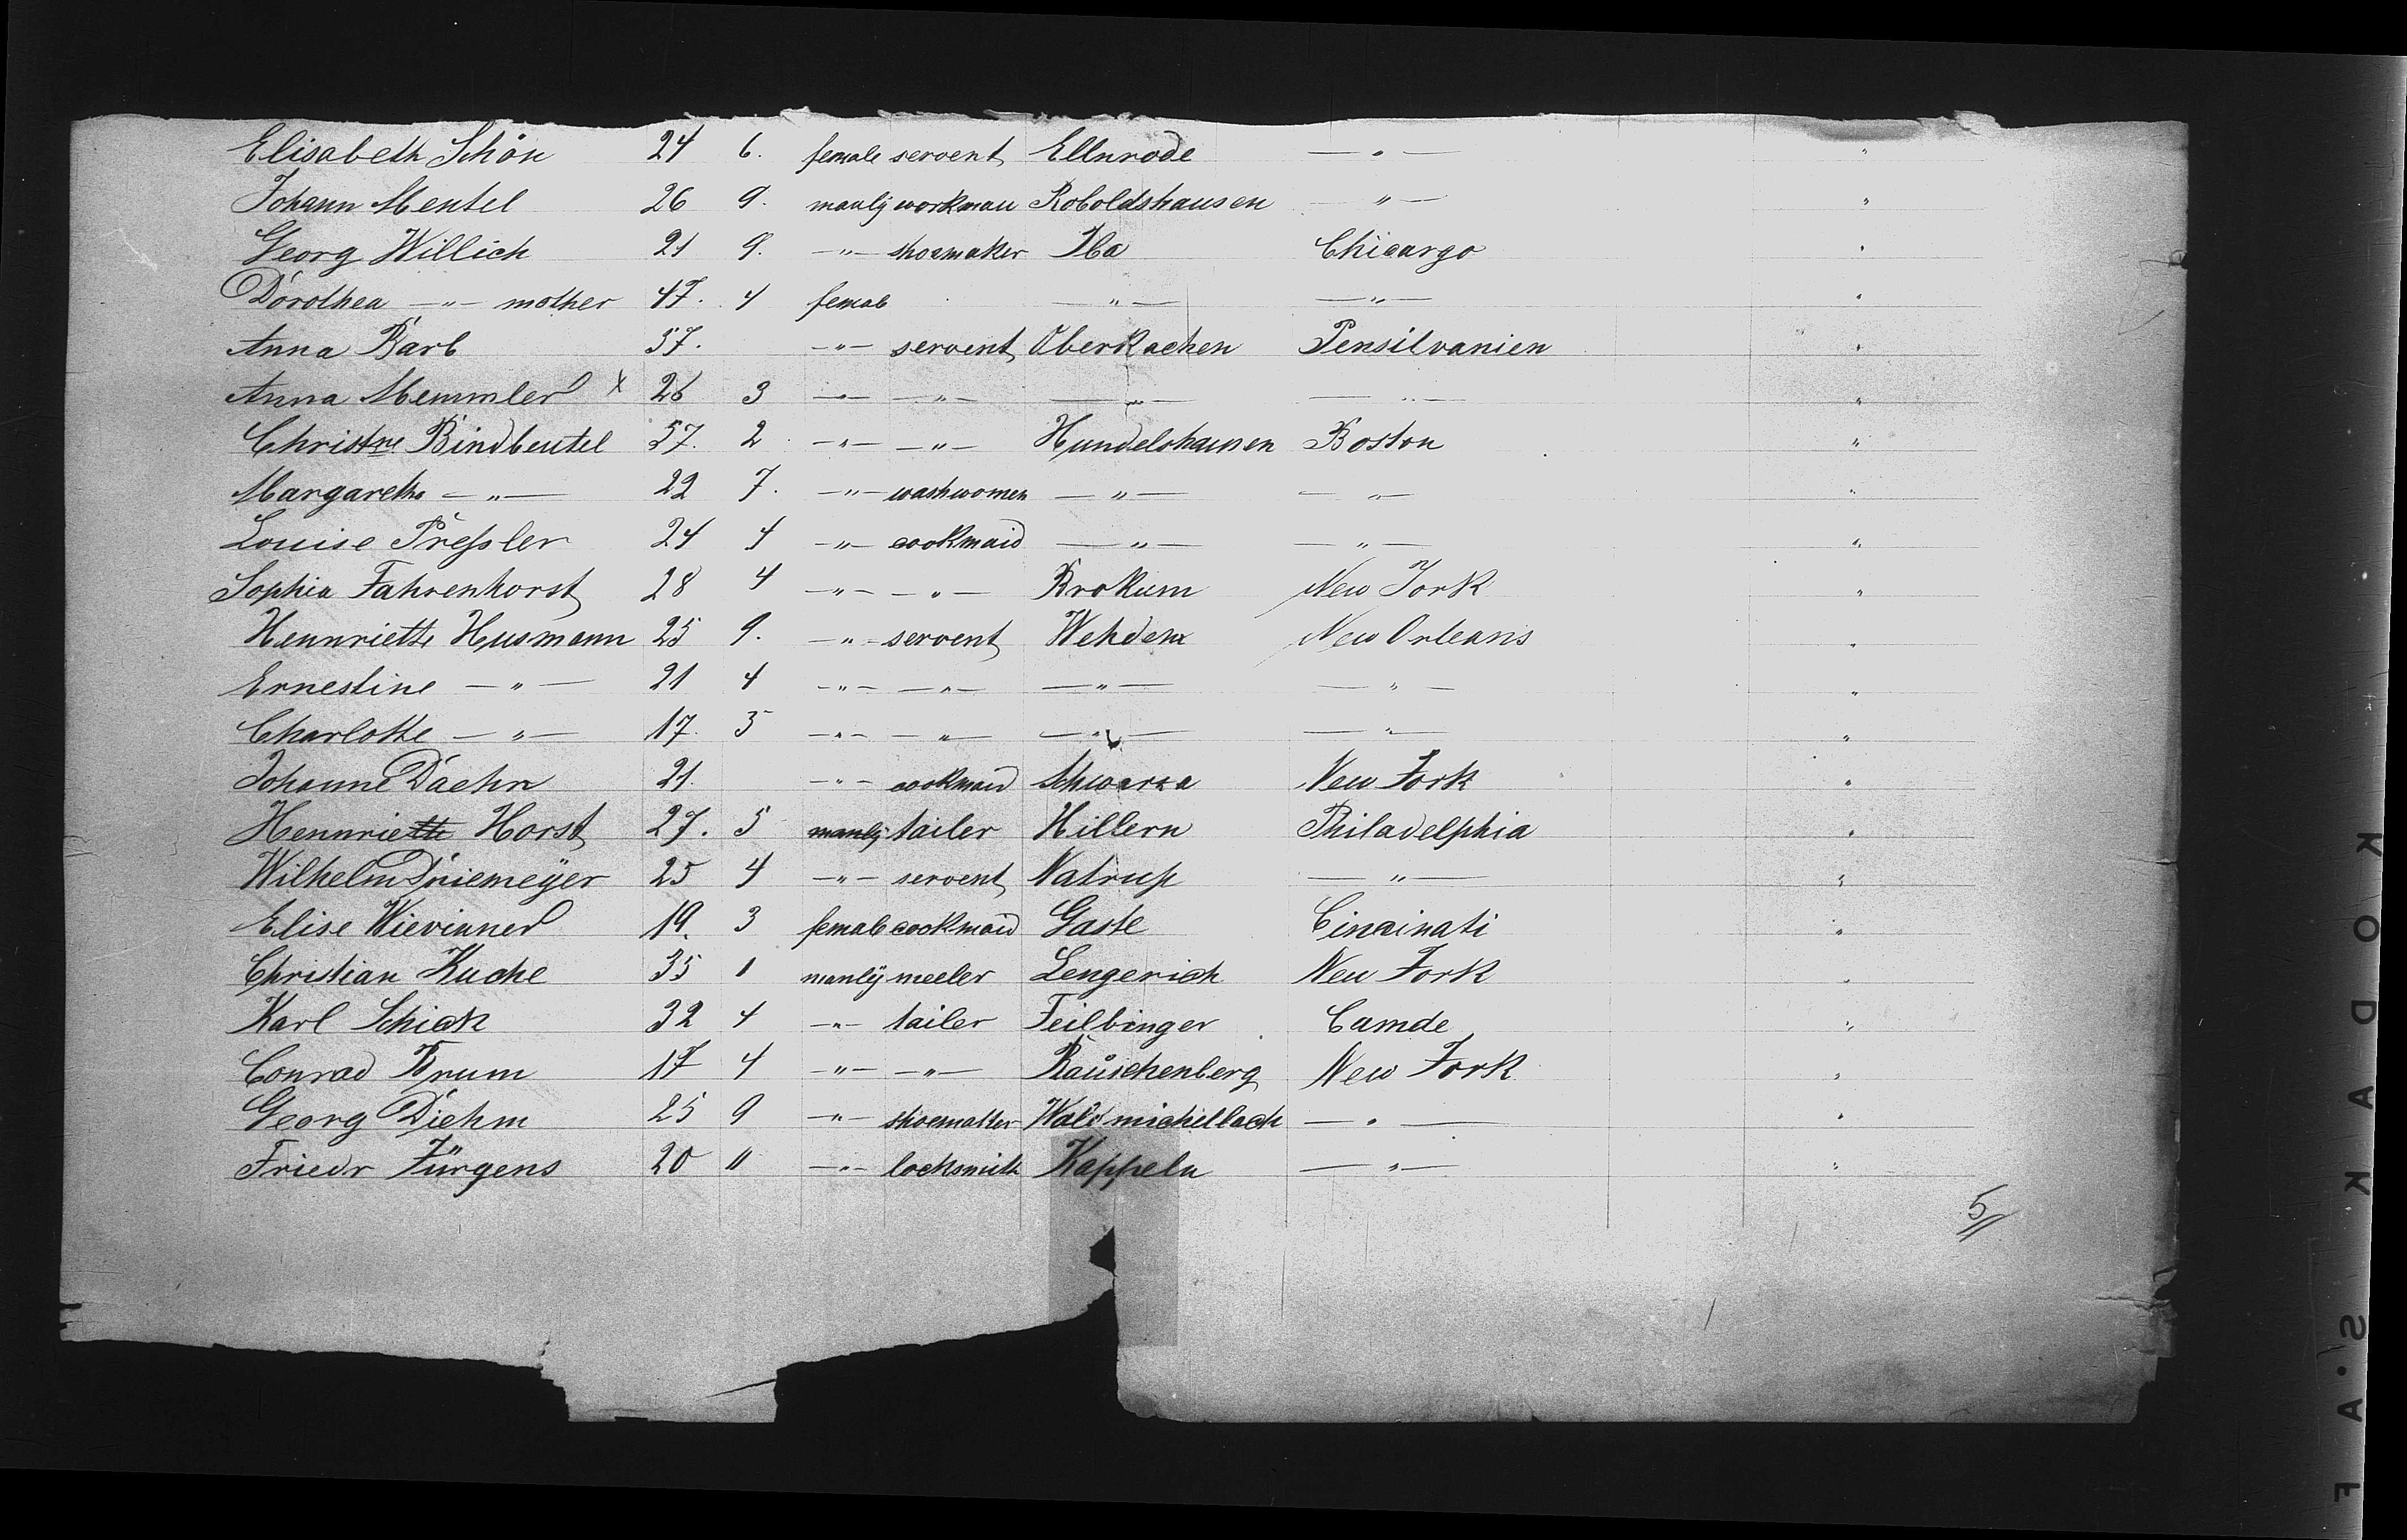 Elisabeth Schön 24 6. female servent Ellnrode —"— "
Johann Mentel 26 9. manly workman Roboldshausen —"— "
Georg Willich 21 9. —"— shoemaker Iba Chicargo "
Dorothea —"— mother 47. 4 female —"— —"— "
Anna Barb 57. —"— servent Oberkachen Pensilvanien "
Anna Memmler x 26 3 —"— —"— —"— —"— "
Christne Bindbeutel 57. 2 —"— —"— Hundelshausen Boston "
Margareth —"— 22 7. —"— washwomen —"— —"— "
Louise Preſsler 24 4 —"— cookmaid —"— —"— "
Sophia Fahrenhorst 28 4 —"— —"— Brokum New York "
Hennriette Husmann 25 9. —"— servent Wehdem New Orleans "
Ernestine —"— 21 4 —"— —"— —"— —"— "
Charlotte —"— 17. 5 —"— —"— —"— —"— "
Johanne Daehn 21. —"— cookmaid Schwarza New York "
Hennriette Horst 27. 5 manly tailer Hillern Philadelphia "
Wilhelm Driemeÿer 25 4 —"— servent Natrup —"— "
Elise Wieviuner 19. 3 female cookmaid Gaste Cincinati "
Christian Kuche 35 1 manlÿ meeler Lengerich New York "
Karl Schick 32 4 —"— tailer Feilbinger Camde "
Conrad Brum 17 4 —"— —"— Rauschenberg New York "
Georg Diehm 25 9 —"— shoemaker Wald michelbach —"— "
Friedr Jürgens 20 11 —"— locksmith Kappeln —"— "
5
KODAK S.A F